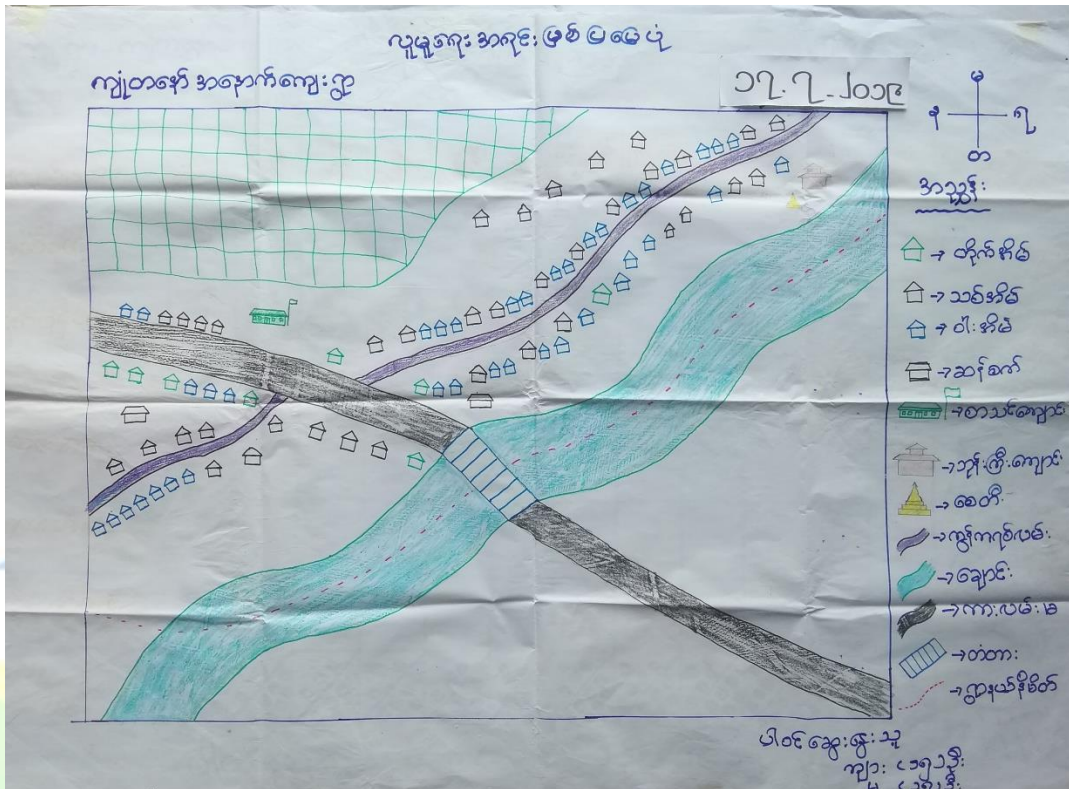 လူမှုရေး အရင်းအမြစ်ပြမြေပုံ
ကျုံတနော် အနောက်ကျေးရွာ
၁၇.၇.၂၀၁၉
မ
န
ရ
တ
အညွှန်း
→ တိုက်အိမ်
→ သစ်အိမ်
→ ဝါးအိမ်
→ ဆန်စက်
→ စာသင်ကျောင်း
→ ဘုန်းကြီးကျောင်း
→ စေတီ
→ ကွန်ကရစ်လမ်း
→ ချောင်း
→ ကားလမ်းမ
→ တံတား
→ ရွာနယ်နိမိတ်
ပါဝင်ဆွေးနွေးသူ
ကျား
မ